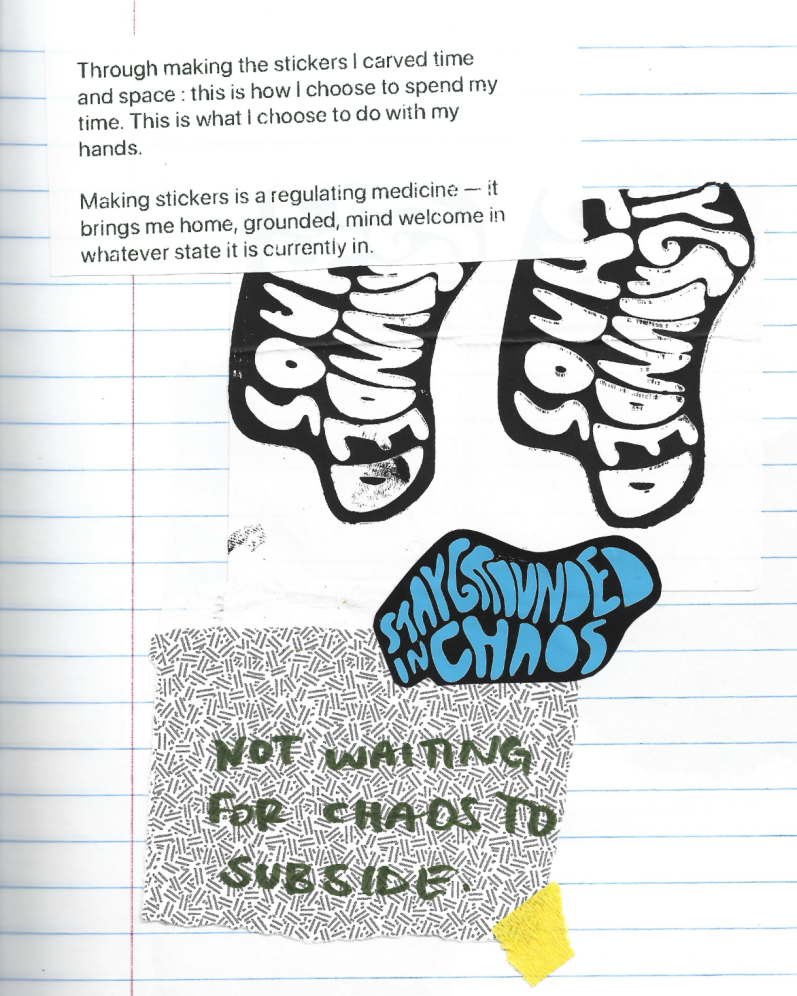 Through making the stickers I carved time
and space : this is how I choose to spend my
time. This is what I choose to do with my
hands.
Making stickers is a regulating medicine — it
brings me home, grounded, mind welcome in
whatever state it is currently in.
STAY GROUNDED
IN CHAOS
NOT WAITING
FOR CHAOS TO
SUBSIDE.